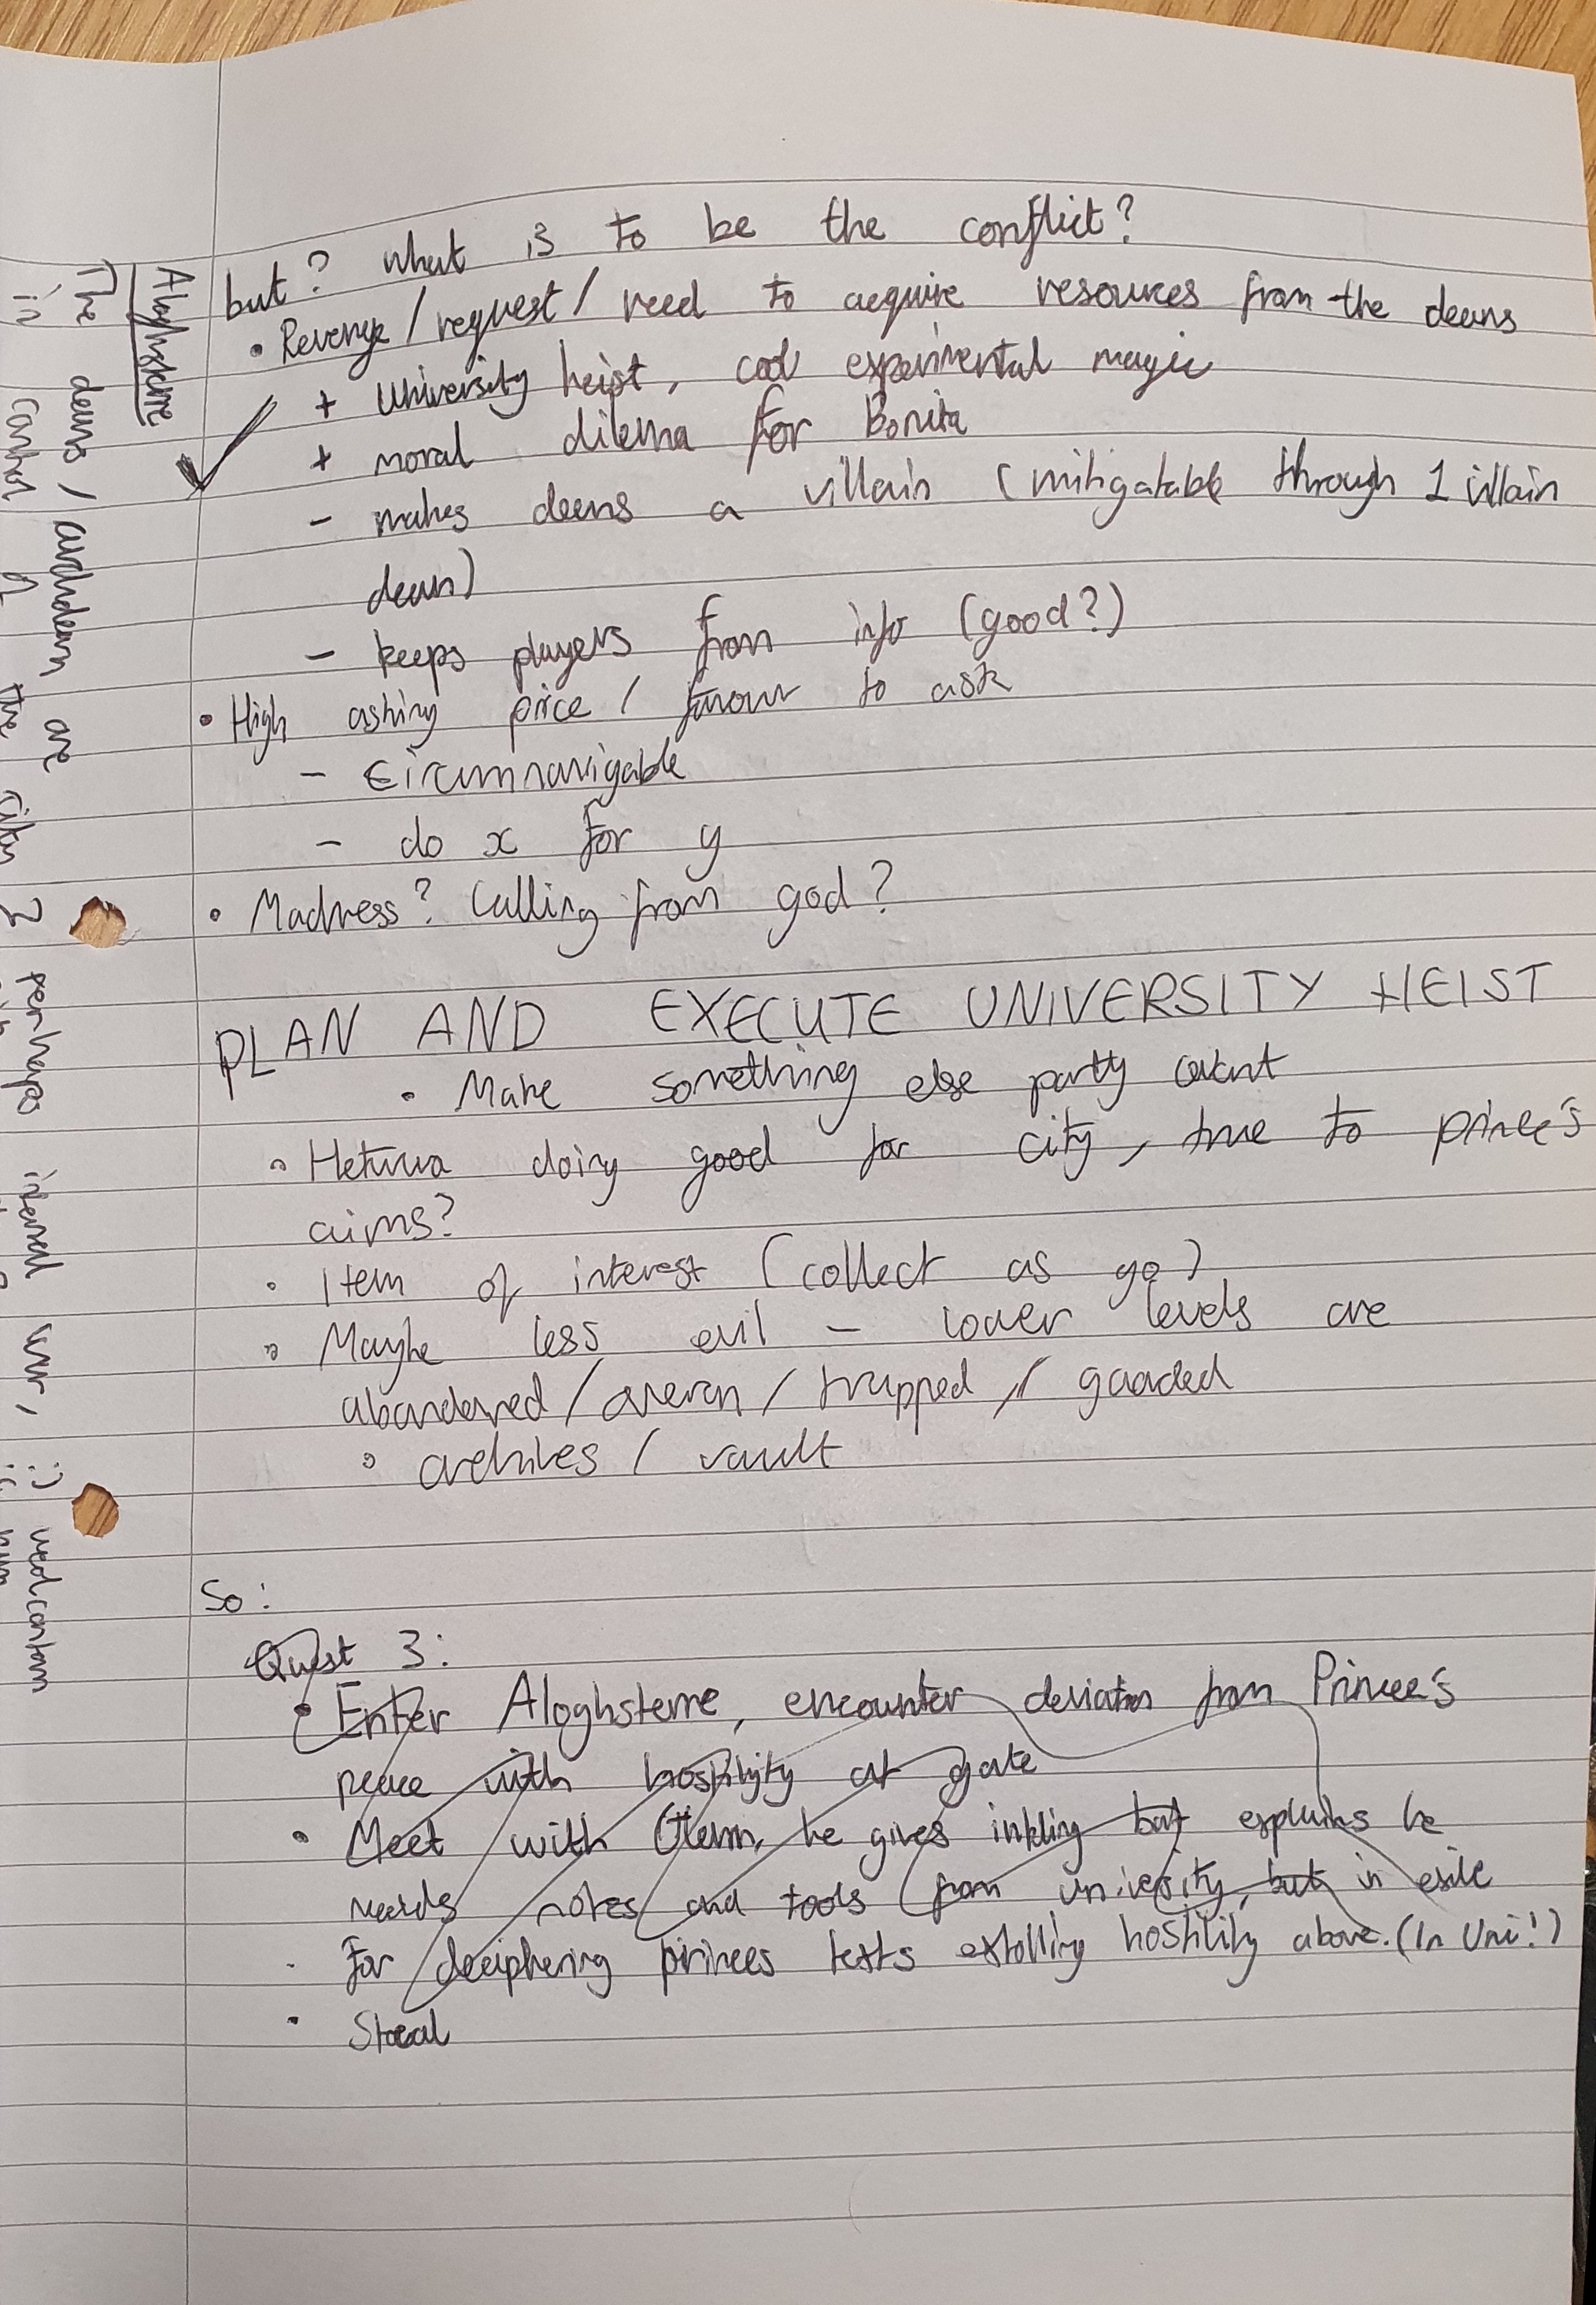 but? what is to be the conflict?
• Revenge / request / need to acquire resources from the deans
+ University heist, cool experimental magic
+ moral dilema for Bonita
- makes deens a villain (mitigatable through 1 illain
dean)
- keeps players from info (good?)
• High asking price / favour to ask
- circumnavigable
- do x for y
• Madness? Calling from god?
PLAN AND EXECUTE UNIVERSITY HEIST
• Make something else party want
• doing good for city, true to prince's
aims?
• Item of interest (collect as go)
• Maybe less evil - lower levels are
abandoned / overun / trapped / guarded
• archives / vault
So:
Quest 3:
• Enter Aloghsterne, encounter deviation from Princee's
peace with hostility at gate
• Meet with he gives inkling but explains he
needs notes and tools from univeristy, but in exile
• for deciphering princes texts extolling hostility above. (In Uni!)
• Steal
Aloghsterne
The deans / archdean are perhaps internal war,
in control of the city